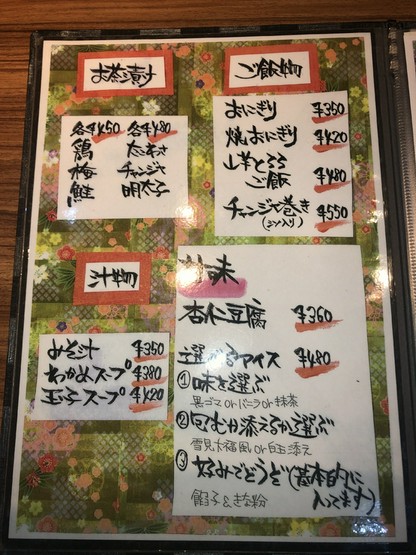 お茶漬け
各¥450 各¥480
鶏 たこわさ
梅 チャンジャ
鮭 明太子
ご飯物
おにぎり ¥350
焼おにぎり ¥420
山芋とろろ
ご飯 ¥480
チャンジャ太巻き ¥550
(シソ入り)
汁物
みそ汁 ¥350
わかめスープ ¥380
玉子スープ ¥420
甘味
杏仁豆腐 ¥360
選べるアイス ¥480
①味を選ぶ
黒ゴマorバニラor抹茶
②包むか添えるか選ぶ
雪見大福風or白玉添え
③お好みでどうぞ(基本的に
入ってます)
餡子&きな粉